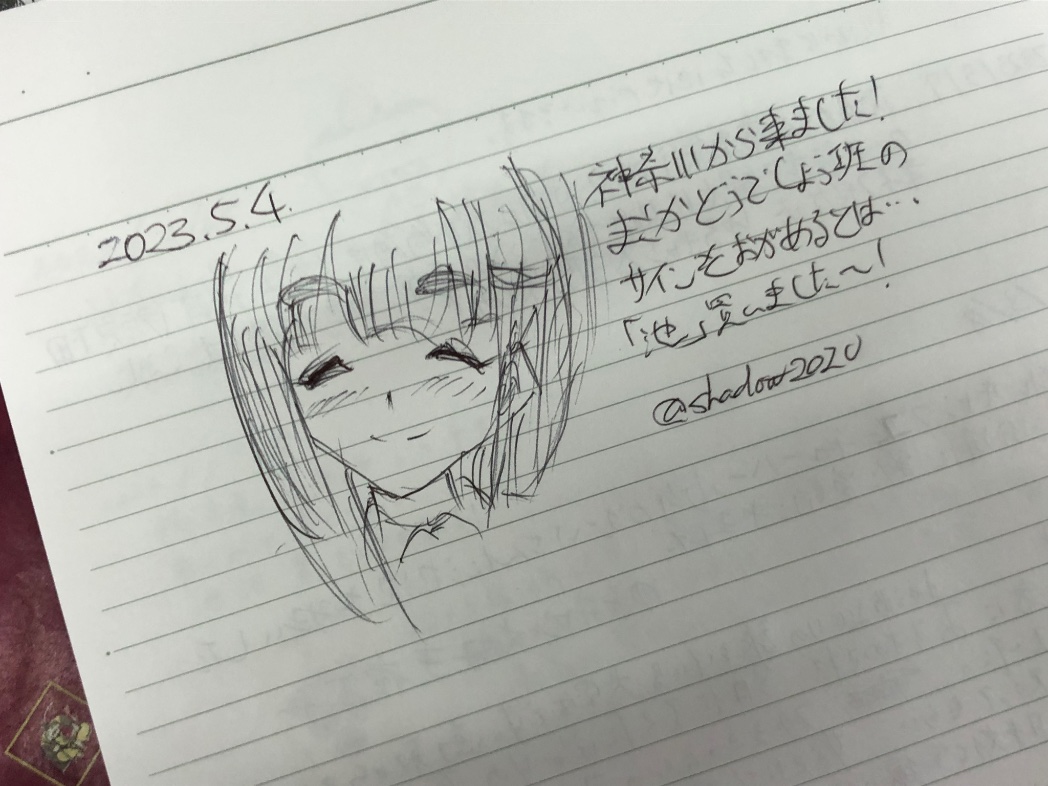 2023.5.4.
神奈川から来ました!
まさかどうでしょう班の
サインをおがめるとは…
「池」買いました〜!
@shadow2020